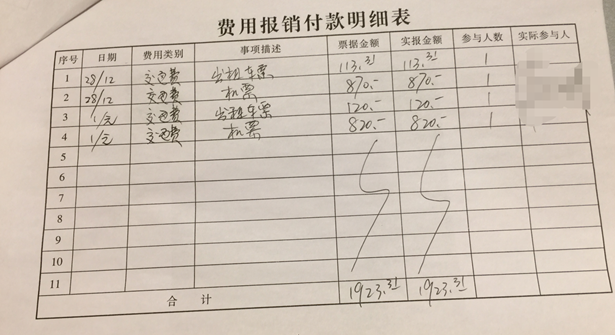 费用报销付款明细表
序号 日期 费用类别 事项描述 票据金额 实报金额 参与人数 实际参与人
1 28/12 交通费 出租车票 113.31 113.31 1
2 28/12 交通费 机票 870.- 870.- 1
3 1/元 交通费 出租车票 120.- 120.- 1
4 1/元 交通费 机票 820.- 820.- 1
5
6
7
8
9
10
11
合计 1923.31 1923.31